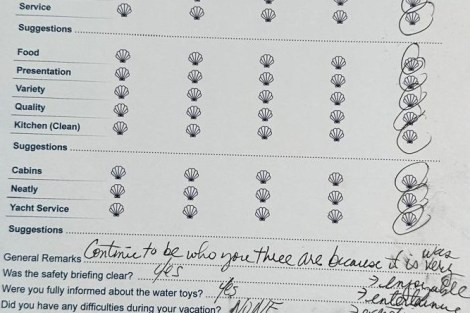 Service
Suggestions
Food
Presentation
Variety
Quality
Kitchen (Clean)
Suggestions
Cabins
Neatly
Yacht Service
Suggestions
General Remarks Continue to be who you three are because it is very
was
Was the safety briefing clear? yes → enjoyable
Were you fully informed about the water toys? yes → entertaining
Did you have any difficulties during your vacation? NONE